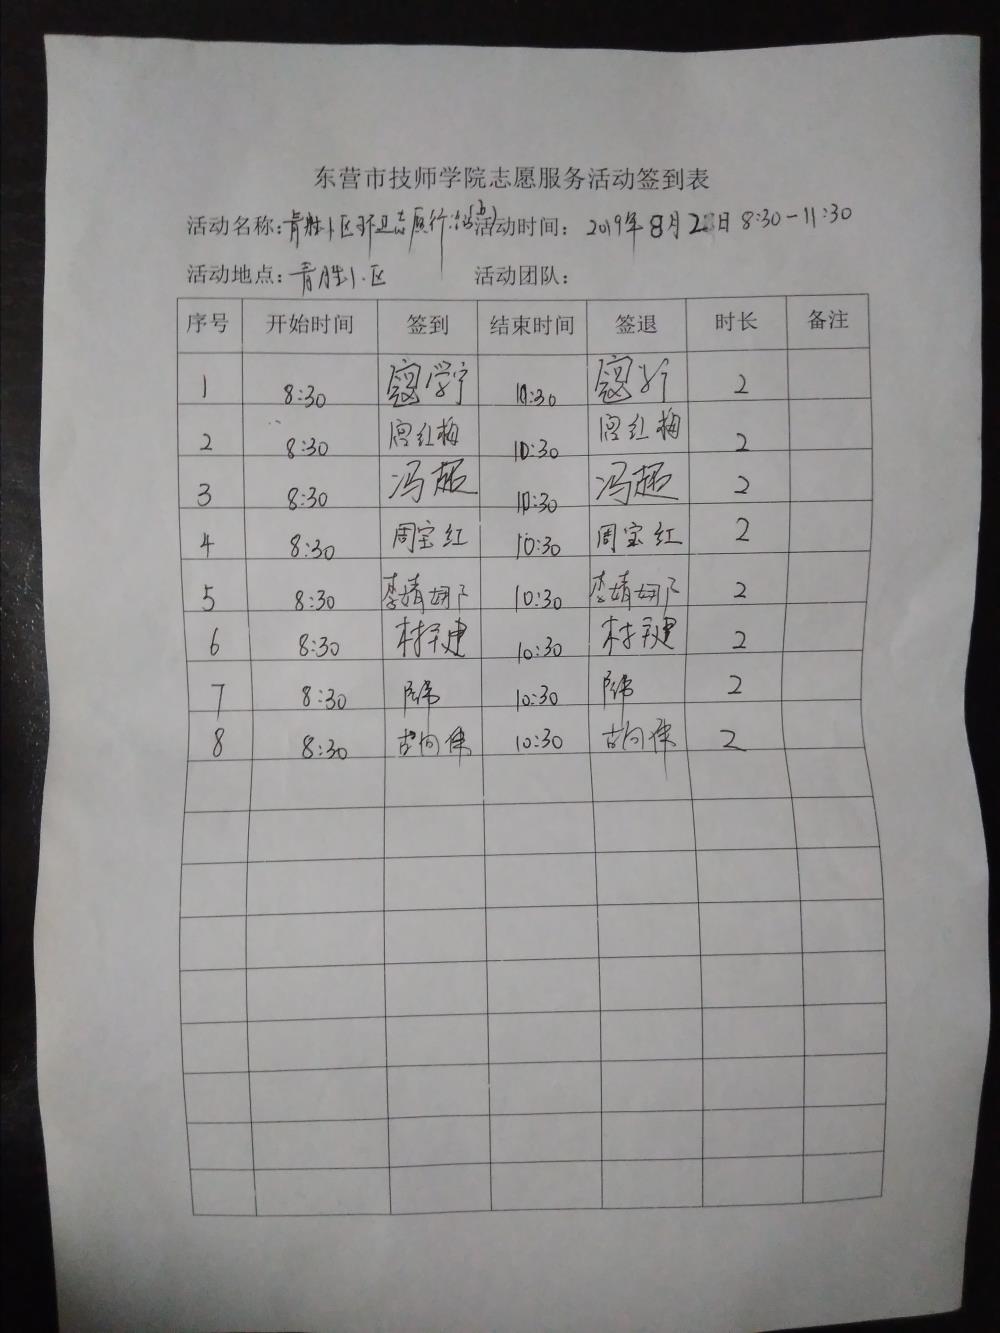 东营市技师学院志愿服务活动签到表
活动名称：青胜小区环卫志愿行活动 活动时间： 2019年8月2日 8:30-11:30
活动地点：青胜小区 活动团队：
序号 开始时间 签到 结束时间 签退 时长 备注
1 8:30 寇学宁 10:30 寇 2
2 8:30 宫红梅 10:30 宫红梅 2
3 8:30 冯超 10:30 冯超 2
4 8:30 周宝红 10:30 周宝红 2
5 8:30 李婧 10:30 李婧 2
6 8:30 建 10:30 建 2
7 8:30 10:30 2
8 8:30 胡向伟 10:30 胡向伟 2